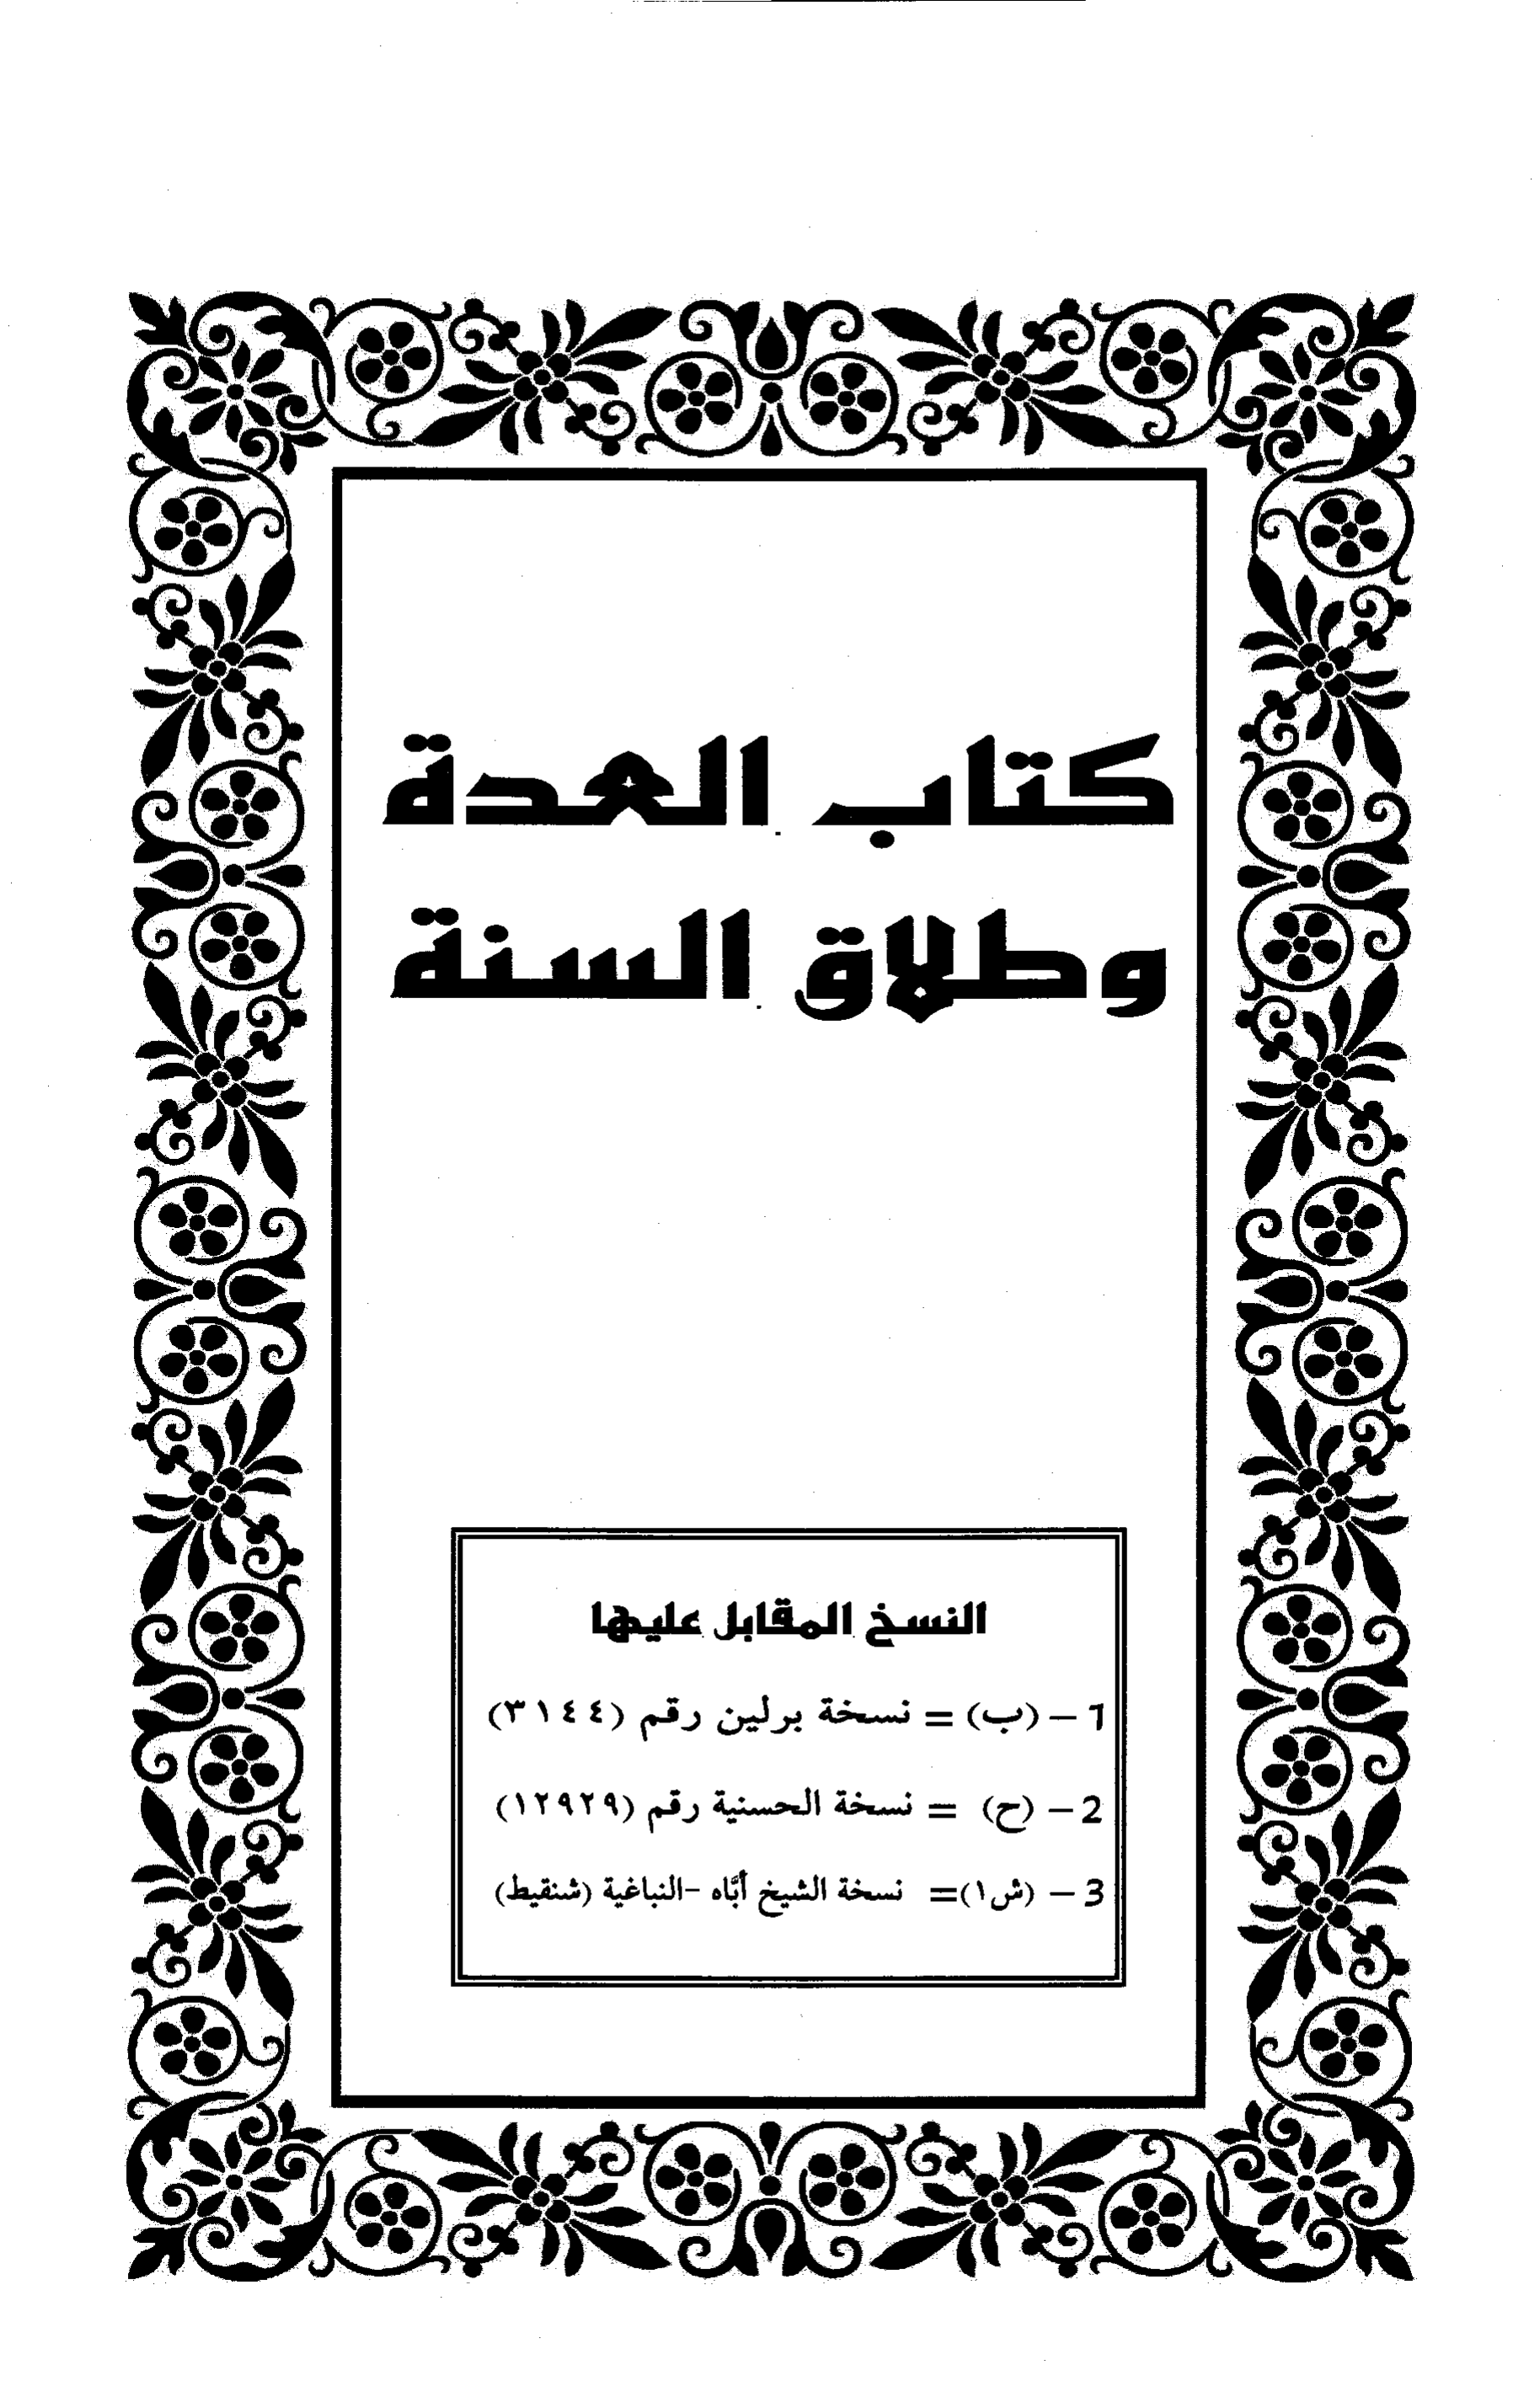 كتاب العدة
وطلاق السنة
النسخ المقابل عليها
1 – (ب) = نسخة برلين رقم (٣١٤٤)
2 – (ح) = نسخة الحسنية رقم (١٢٩٢٩)
3 – (ش١)= نسخة الشيخ أبَّاه -النباغية (شنقيط)